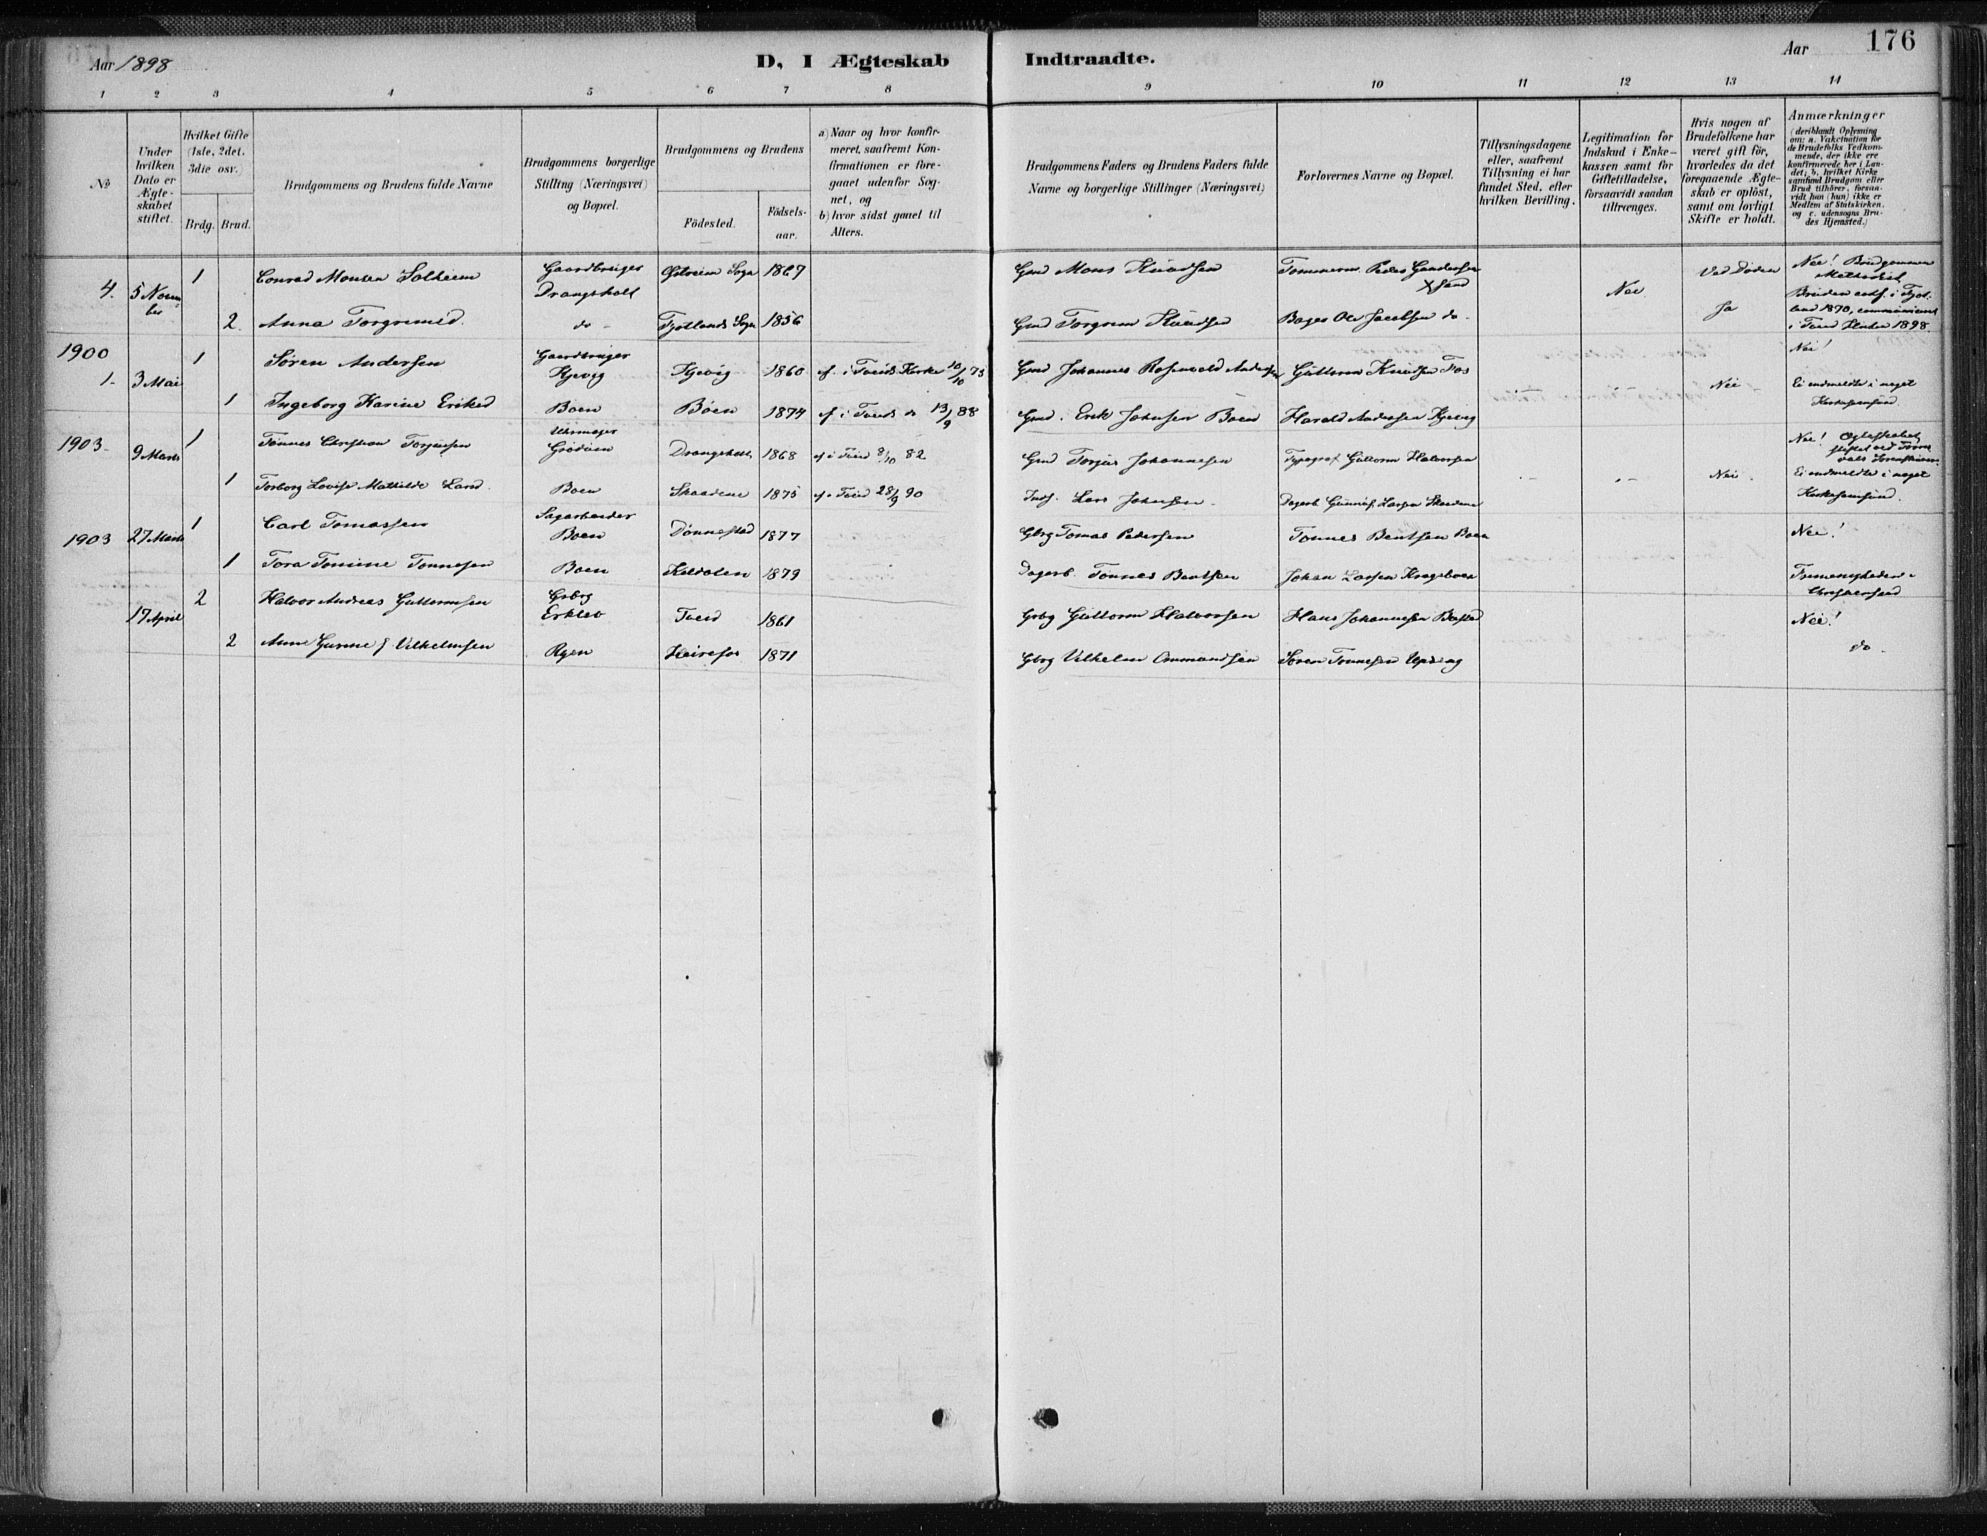 Aar 1898
D, I Ægteskab
Indtraadte.
Aar
176
1 2 3 4 5 6 7 8 9 10 11 12 13 14
№
Under hvilken Dato er Ægteskabet stiftet.
Hvilket Gifte (1ste, 2det. 3die osv.)
Brdg. Brud.
Brudgommens og Brudens fulde Navne
Brudgommens borgerlige Stilling (Næringsvei) og Bopæl.
Brudgommens og Brudens
Födested.
Födselsaar.
a) Naar og hvor konfirmeret, saafremt Konfirmationen er foregaaet udenfor Sognet, og
b) hvor sidst gaaet til Alters.
Brudgommens Faders og Brudens Faders fulde Navne og borgerlige Stillinger (Næringsvei)
Forlovernes Navne og Bopæl.
Tillysningsdagene eller, saafremt Tillysning ei har fundet Sted, efter hvilken Bevilling.
Legitimation for Indskud i Enkekassen samt for Giftetilladelse, forsaavidt saadan tiltrænges.
Hvis nogen af Brudefolkene har været gift för, hvorledes da det foregaaende Ægteskab er oplöst, samt om lovligt Skifte er holdt.
Anmærkninger
(deriblandt Oplysning om: a. Vakcination for de Brudefolks Vedkommende, der ikke ere konfirmerede her i Landet; b. hvilket Kirkesamfund Brudgom eller Brud tilhörer, forsaavidt han (hun) ikke er Medlem af Statskirken, og c. udensogns Brudes Hjemsted.)
4. 5 Novmber 1 Conrad Monsen Solheim Gaardbruger Drangsholt Sogn 1867 Gmd Mons Knudsen Tømmerm. Peder Gundersen Xsand Nei Ved Døden Nei! Brudgommen Methodist
2. Anna Torgrimsd. do Fjotlands Sogn 1856 Gmd Torgrim Knudsen Bager Ole Jacobsen do. Ja Bruden conf. i Fjotland 1870, i Tveid 1898.
1900
1. 3 Mai 1 Søren Andersen Gaardbruger Kjevig Kjevig 1860 cf. i Tveids Kirke 10/10 75 Gmd Johannes Rosenvold Andersen Guttorm Knudsen Fos Nei Nei!
1 Ingeborg Karine Eriksd Boen Boen 1874 cf i Tveids do 13/9 88 Gmd. Erik Johnsen Boen Harald Andersen Kjevig Ei indmeldte i noget Kirkesamfund.
1903 9 Marts 1 Tønnes Christian Torjussen Uhrmager Grødum Drangsholt 1868 cf i Tveid 8/10 82 Gmd Torjus Johannesen Typograf Guttorm Halvorsen Nei Nei! Ægteskabet stiftet ved
1 Torborg Lovise Mathilde Land Boen Skaadene 1875 cf. Tveid 28/9 90 Indf. Lars Johnsen Dagarb. Gunnuf Larsen Skaadene Ei indmeldte i noget Kirkesamfund.
1903 27 Marts 1 Carl Tomassen Sagarbeider Boen Dønnestad 1877 Gbrg Tomas Pedersen Tønnes Bentsen Boen Nei!
1 Tora Tomine Tønnesen Boen Keldalen 1879 Dagarb. Tønnes Bentsen Johan Larsen Krageboen Frimenigheden i Christianssand
17 April 2 Halvor Andreas Guttormsen Gbrg Erklev Tveid 1861 Gbrg Guttorm Halvorsen Hans Johannesen Nei!
2 Anne Gurine f Vilhelmsen Ryen Heirefos 1871 Gbrg Vilhelm Ommundsen Søren Tønnesen do